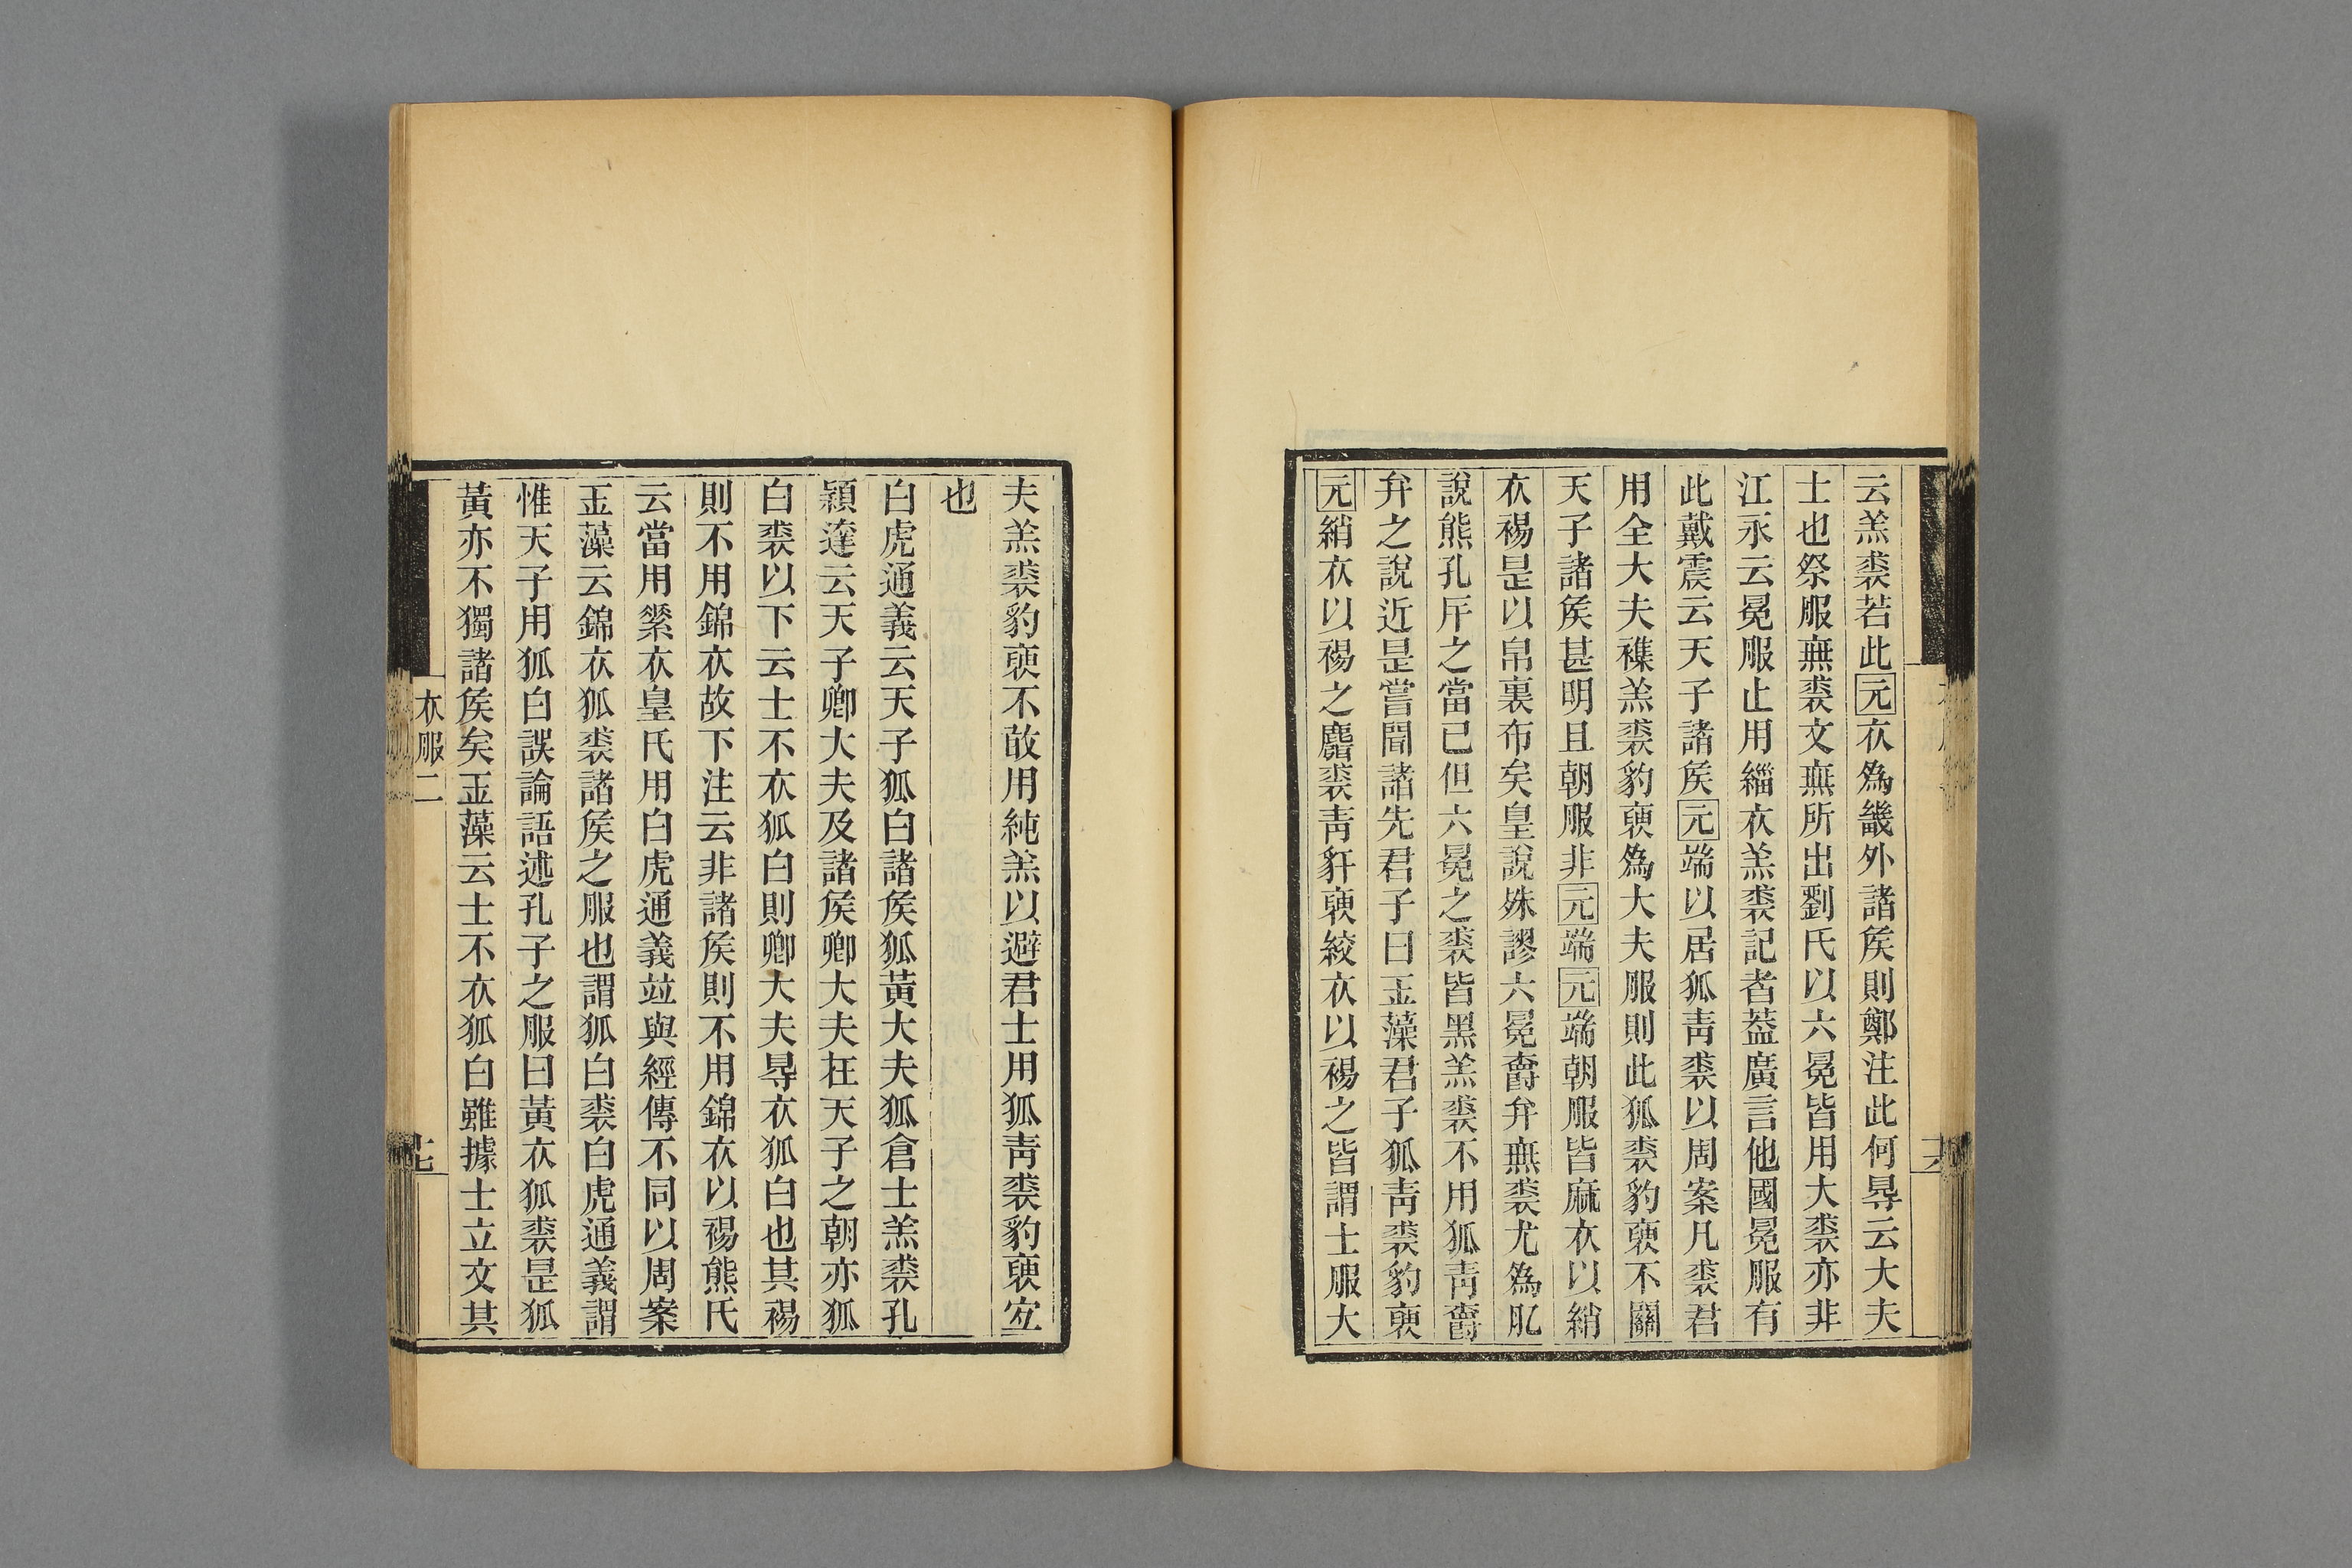 云羔裘若此元衣爲畿外諸矦則鄭注此何㝵云大夫
士也祭服無裘文無所出劉氏以六冕皆用大裘亦非
江永云冕服止用緇衣羔裘記者葢廣言他國冕服有
此戴震云天子諸矦元端以居狐靑裘以周案凡裘君
用全大夫襍羔裘豹褎爲大夫服則此狐裘豹褎不關
天子諸矦甚明且朝服非元端元端朝服皆麻衣以綃
衣裼是以帛裏布矣皇說殊謬六冕爵弁無裘尤爲肊
說熊孔斥之當已但六冕之裘皆黑羔裘不用狐靑爵
弁之說近是嘗聞諸先君子曰玉藻君子狐靑裘豹褎
元綃衣以裼之麛裘靑豻褎絞衣以裼之皆謂士服大
夫羔裘豹褎不敢用純羔以避君士用狐靑裘豹褎宐
也
白虎通義云天子狐白諸矦狐黃大夫狐倉士羔裘孔
穎達云天子卿大夫及諸矦卿大夫在天子之朝亦狐
白裘以下云士不衣狐白則卿大夫㝵衣狐白也其裼
則不用錦衣故下注云非諸矦則不用錦衣以裼熊氏
云當用縏衣皇氏用白虎通義竝與經傳不同以周案
玉藻云錦衣狐裘諸矦之服也謂狐白裘白虎通義謂
惟天子用狐白誤論語述孔子之服曰黃衣狐裘是狐
黃亦不獨諸矦矣玉藻云士不衣狐白雖據士立文其
衣服二
十七